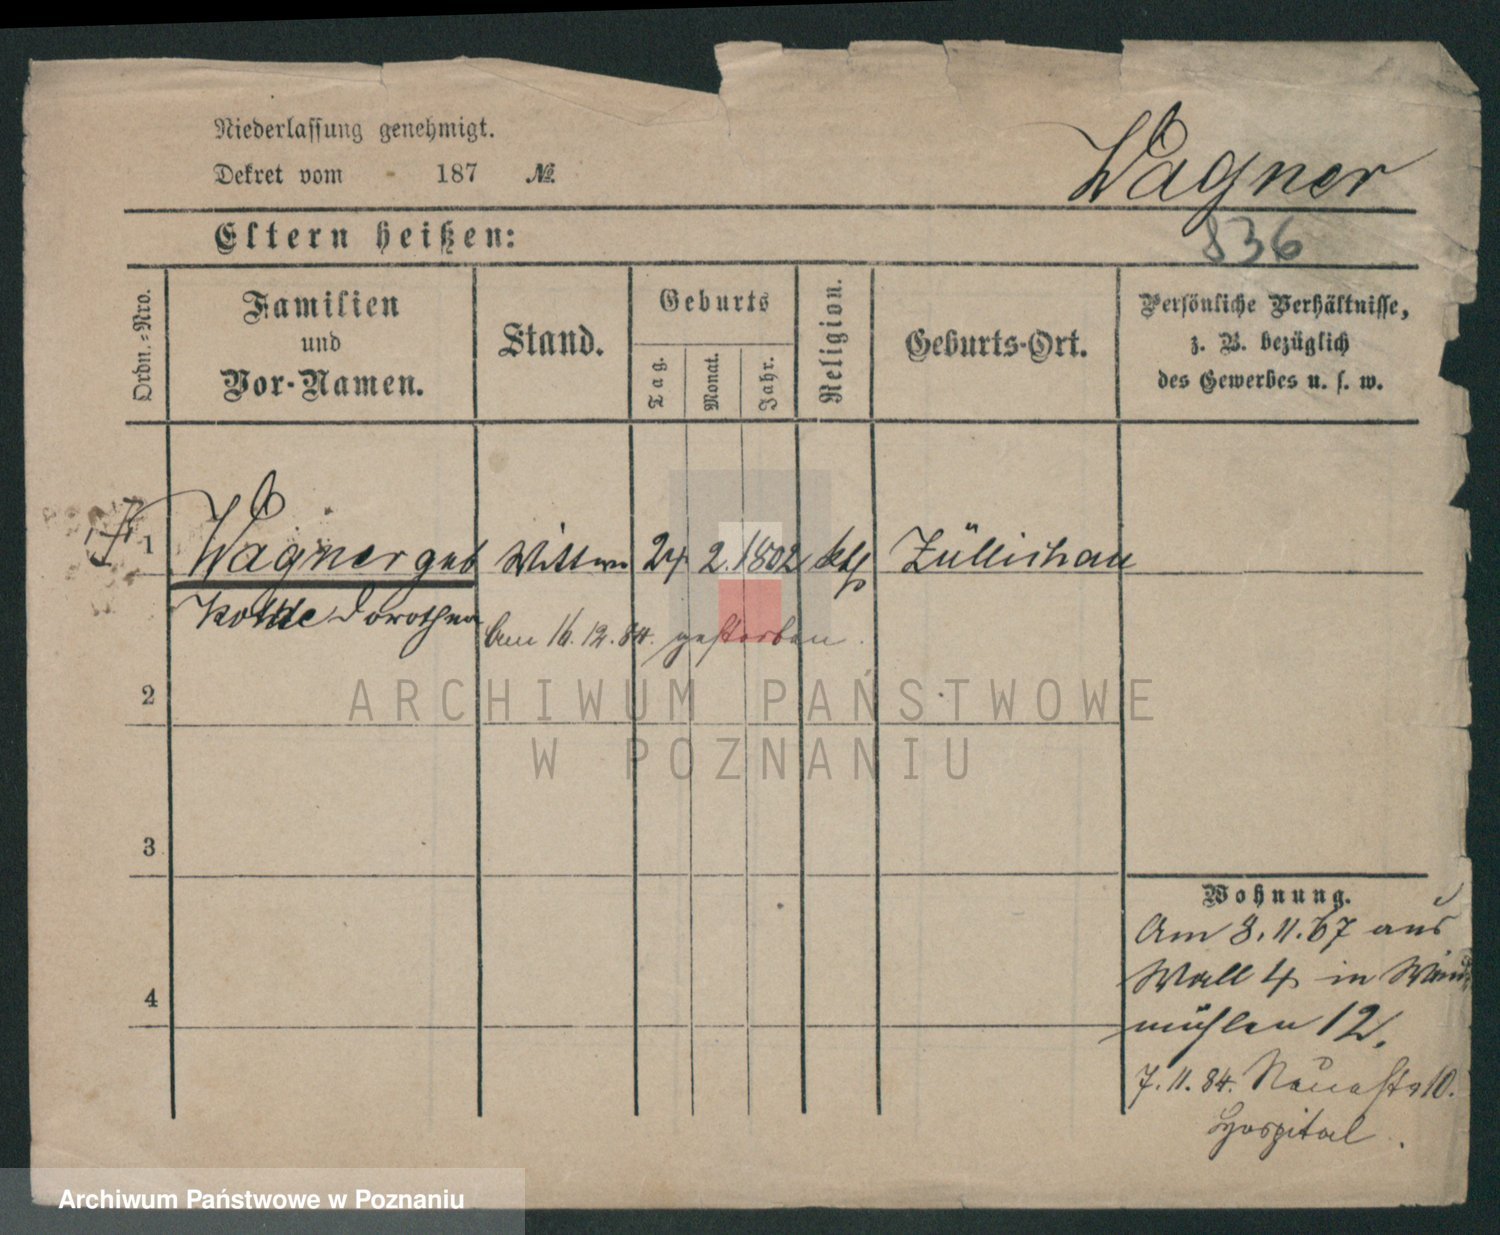 Niederlassung genehmigt.
Dekret vom 187 №
Wagner
Eltern heißen:
836
Ordn.-Nro.
Familien
und
Vor-Namen.
Stand.
Geburts
Tag.
Monat.
Jahr.
Religion.
Geburts-Ort.
Persönliche Verhältnisse,
z. B. bezüglich
des Gewerbes u. s. w.
1 Wagner geb Wittwe 24 2. 1802 kth Züllichau
Dorothea
Am 16.12.84. gestorben.
ARCHIWUM PAŃSTWOWE
W POZNANIU
2
3
4
Wohnung.
Am 8.11.67 aus
Wall 4 in Wind
mühlen 12.
7.11.84. Neuestr 10.
Hospital.
Archiwum Państwowe w Poznaniu